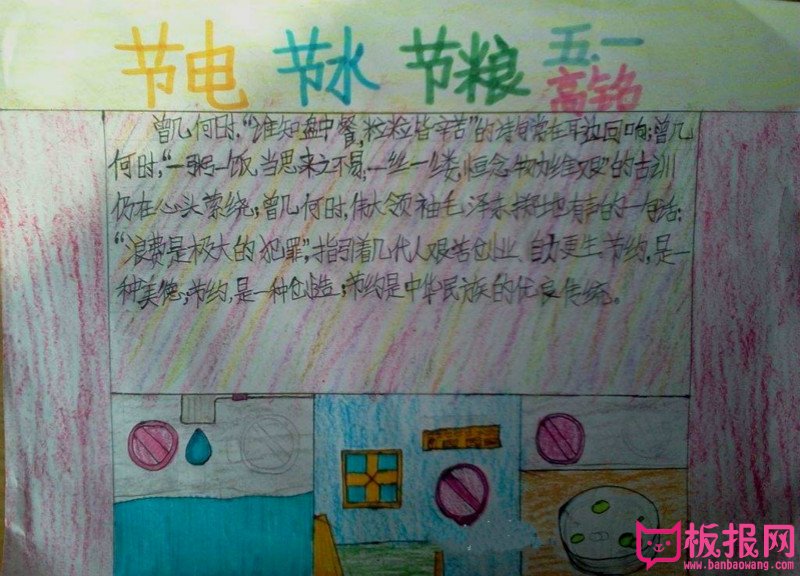 节电 节水 节粮 五.一
高铭
曾几何时,“谁知盘中餐,粒粒皆辛苦”的诗句常在耳边回响;曾几
何时,“一粥一饭,当思来之不易,一丝一缕,恒念物力维艰”的古训
仍在心头萦绕;曾几何时,伟大领袖毛泽东掷地有声的一句话:
“浪费是极大的犯罪”,指引着几代人艰苦创业、自力更生.节约,是一
种美德;节约,是一种创造;节约是中华民族的优良传统。
板报网
www.banbaowang.com